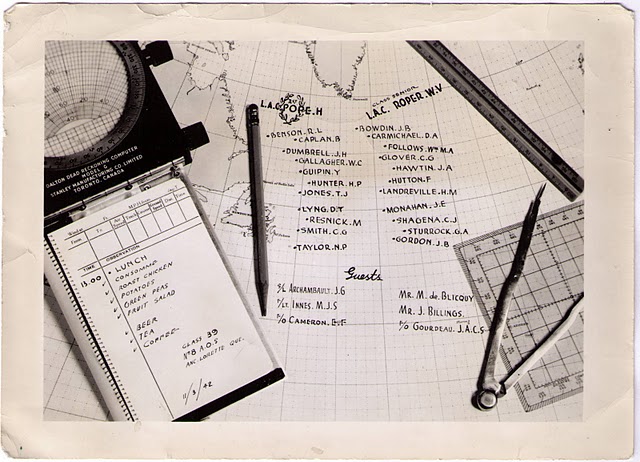 DALTON DEAD RECKONING COMPUTER
MODEL G
STANLEY MANUFACTURING CO. LIMITED
TORONTO, CANADA
TIME OBSERVATION
13.00 • LUNCH
CONSOMME
ROAST CHICKEN
POTATOES
GREEN PEAS
FRUIT SALAD
BEER
TEA
COFFEE
CLASS 39
Nº8 A.O.S
ANC. LORETTE QUE.
11/3/42
L.A.C. POPE.H
• BENSON.R.L
• CAPLAN.B
• DUMBRELL.J.H
• GALLAGHER.W.C
• GUIPIN.Y
• HUNTER.H.P
• JONES.T.J
• LYNG.D.T
• RESNICK.M
• SMITH.C.G
• TAYLOR.N.P
CLASS SENIOR
L.A.C. ROPER.W.V
• BOWDIN.J.B
• CARMICHAEL.D.A
• FOLLOWS.Wm M.A
• GLOVER.C.G
• HAWTIN.J.A
• HUTTON.F
• LANDREVILLE.H.M
• MONAHAN.J.E
• SHAGENA.C.J
• STURROCK.G.A
• GORDON.J.B
Guests
S/L ARCHAMBAULT.J.G
F/Lt. INNES.M.J.S
P/O CAMERON.E.F.
Mr. M. de. BLICQUY
Mr. J. BILLINGS.
P/O GOURDEAU.J.A.C.S